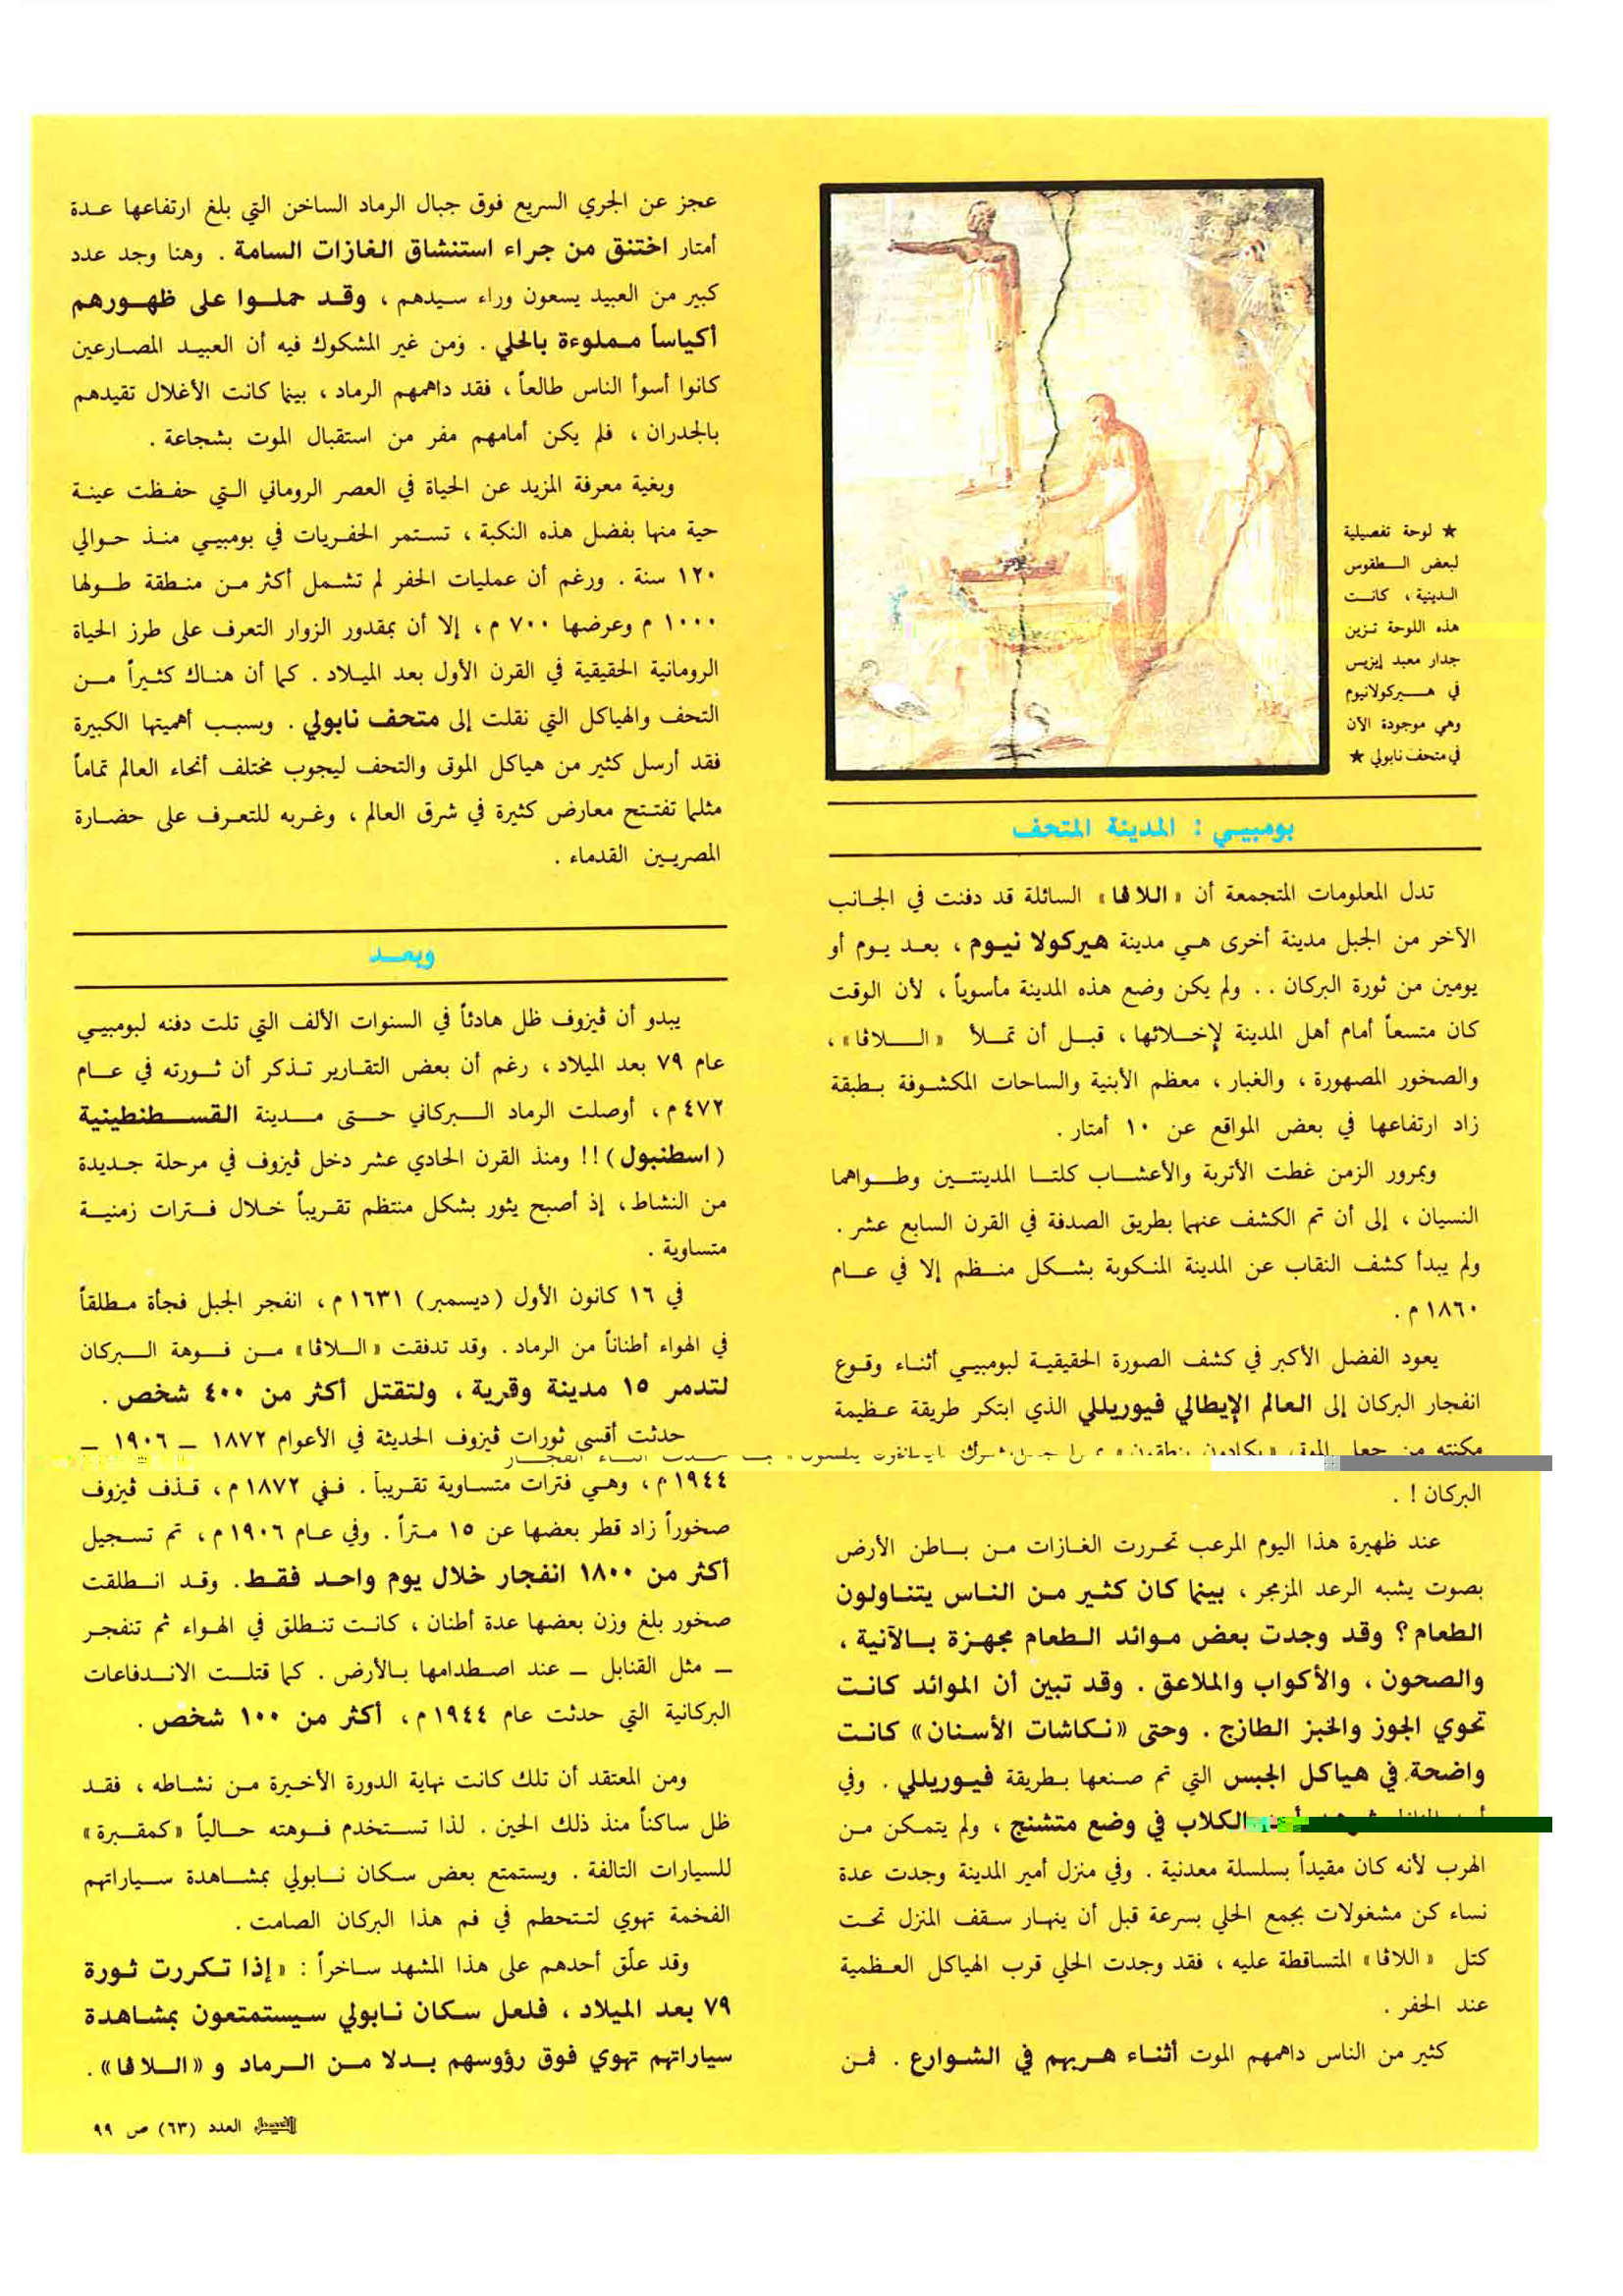 ★ لوحة تفصيلية
لبعض الطقوس
الدينية ، كانت
هذه اللوحة تزين
جدار معبد إيزيس
في هيركولانيوم
وهي موجودة الآن
في متحف نابولي ★
بومبيي : المدينة المتحف
تدل المعلومات المتجمعة أن «اللاڤا» السائلة قد دفنت في الجانب
الآخر من الجبل مدينة أخرى هي مدينة هيركولا نيوم ، بعد يوم أو
يومين من ثورة البركان . . ولم يكن وضع هذه المدينة مأسوياً ، لأن الوقت
كان متسعاً أمام أهل المدينة لإخلائها ، قبل أن تملأ «اللاڤا» ،
والصخور المصهورة ، والغبار ، معظم الأبنية والساحات المكشوفة بطبقة
زاد ارتفاعها في بعض المواقع عن ١٠ أمتار .
وبمرور الزمن غطت الأتربة والأعشاب كلتا المدينتين وطواهما
النسيان ، إلى أن تم الكشف عنهما بطريق الصدفة في القرن السابع عشر .
ولم يبدأ كشف النقاب عن المدينة المنكوبة بشكل منظم إلا في عام
١٨٦٠ م .
يعود الفضل الأكبر في كشف الصورة الحقيقية لبومبيي أثناء وقوع
انفجار البركان إلى العالم الإيطالي فيوريللي الذي ابتكر طريقة عظيمة
مكنته من جعل الموتى «يكادون ينطقون»
البركان ! .
عند ظهيرة هذا اليوم المرعب تحررت الغازات من باطن الأرض
بصوت يشبه الرعد المزمجر ، بينما كان كثير من الناس يتناولون
الطعام ؟ وقد وجدت بعض موائد الطعام مجهزة بالآنية ،
والصحون ، والأكواب والملاعق . وقد تبين أن الموائد كانت
تحوي الجوز والخبز الطازج . وحتى «نكاشات الأسنان» كانت
واضحة في هياكل الجبس التي تم صنعها بطريقة فيوريللي . وفي
الكلاب في وضع متشنج ، ولم يتمكن من
الهرب لأنه كان مقيداً بسلسلة معدنية . وفي منزل أمير المدينة وجدت عدة
نساء كن مشغولات بجمع الحلي بسرعة قبل أن ينهار سقف المنزل تحت
كتل «اللاڤا» المتساقطة عليه ، فقد وجدت الحلي قرب الهياكل العظمية
عند الحفر .
كثير من الناس داهمهم الموت أثناء هربهم في الشوارع . فمن
عجز عن الجري السريع فوق جبال الرماد الساخن التي بلغ ارتفاعها عدة
أمتار اختنق من جراء استنشاق الغازات السامة . وهنا وجد عدد
كبير من العبيد يسعون وراء سيدهم ، وقد حملوا على ظهورهم
أكياساً مملوءة بالحلي . ومن غير المشكوك فيه أن العبيد المصارعين
كانوا أسوأ الناس طالعاً ، فقد داهمهم الرماد ، بينما كانت الأغلال تقيدهم
بالجدران ، فلم يكن أمامهم مفر من استقبال الموت بشجاعة .
وبغية معرفة المزيد عن الحياة في العصر الروماني التي حفظت عينة
حية منها بفضل هذه النكبة ، تستمر الحفريات في بومبيي منذ حوالي
١٢٠ سنة . ورغم أن عمليات الحفر لم تشمل أكثر من منطقة طولها
١٠٠٠ م وعرضها ٧٠٠ م ، إلا أن بمقدور الزوار التعرف على طرز الحياة
الرومانية الحقيقية في القرن الأول بعد الميلاد . كما أن هناك كثيراً من
التحف والهياكل التي نقلت إلى متحف نابولي . وبسبب أهميتها الكبيرة
فقد أرسل كثير من هياكل الموتى والتحف ليجوب مختلف أنحاء العالم تماماً
مثلما تفتتح معارض كثيرة في شرق العالم ، وغربه للتعرف على حضارة
المصريين القدماء .
وبعد
يبدو أن ڤيزوف ظل هادئاً في السنوات الألف التي تلت دفنه لبومبيي
عام ٧٩ بعد الميلاد ، رغم أن بعض التقارير تذكر أن ثورته في عام
٤٧٢ م ، أوصلت الرماد البركاني حتى مدينة القسطنطينية
(اسطنبول) !! ومنذ القرن الحادي عشر دخل ڤيزوف في مرحلة جديدة
من النشاط ، إذ أصبح يثور بشكل منتظم تقريباً خلال فترات زمنية
متساوية .
في ١٦ كانون الأول (ديسمبر) ١٦٣١ م ، انفجر الجبل فجأة مطلقاً
في الهواء أطناناً من الرماد . وقد تدفقت «اللاڤا» من فوهة البركان
لتدمر ١٥ مدينة وقرية ، ولتقتل أكثر من ٤٠٠ شخص .
حدثت أقسى ثورات ڤيزوف الحديثة في الأعوام ١٨٧٢ – ١٩٠٦ –
١٩٤٤ م ، وهي فترات متساوية تقريباً . ففي ١٨٧٢ م ، قذف ڤيزوف
صخوراً زاد قطر بعضها عن ١٥ متراً . وفي عام ١٩٠٦ م ، تم تسجيل
أكثر من ١٨٠٠ انفجار خلال يوم واحد فقط . وقد انطلقت
صخور بلغ وزن بعضها عدة أطنان ، كانت تنطلق في الهواء ثم تنفجر
– مثل القنابل – عند اصطدامها بالأرض . كما قتلت الاندفاعات
البركانية التي حدثت عام ١٩٤٤ م ، أكثر من ١٠٠ شخص .
ومن المعتقد أن تلك كانت نهاية الدورة الأخيرة من نشاطه ، فقد
ظل ساكناً منذ ذلك الحين . لذا تستخدم فوهته حالياً «كمقبرة»
للسيارات التالفة . ويستمتع بعض سكان نابولي بمشاهدة سياراتهم
الفخمة تهوي لتتحطم في فم هذا البركان الصامت .
وقد علّق أحدهم على هذا المشهد ساخراً : «إذا تكررت ثورة
٧٩ بعد الميلاد ، فلعل سكان نابولي سيستمتعون بمشاهدة
سياراتهم تهوي فوق رؤوسهم بدلا من الرماد و «اللاڤا» .
الفيصل العدد (٦٣) ص ٩٩